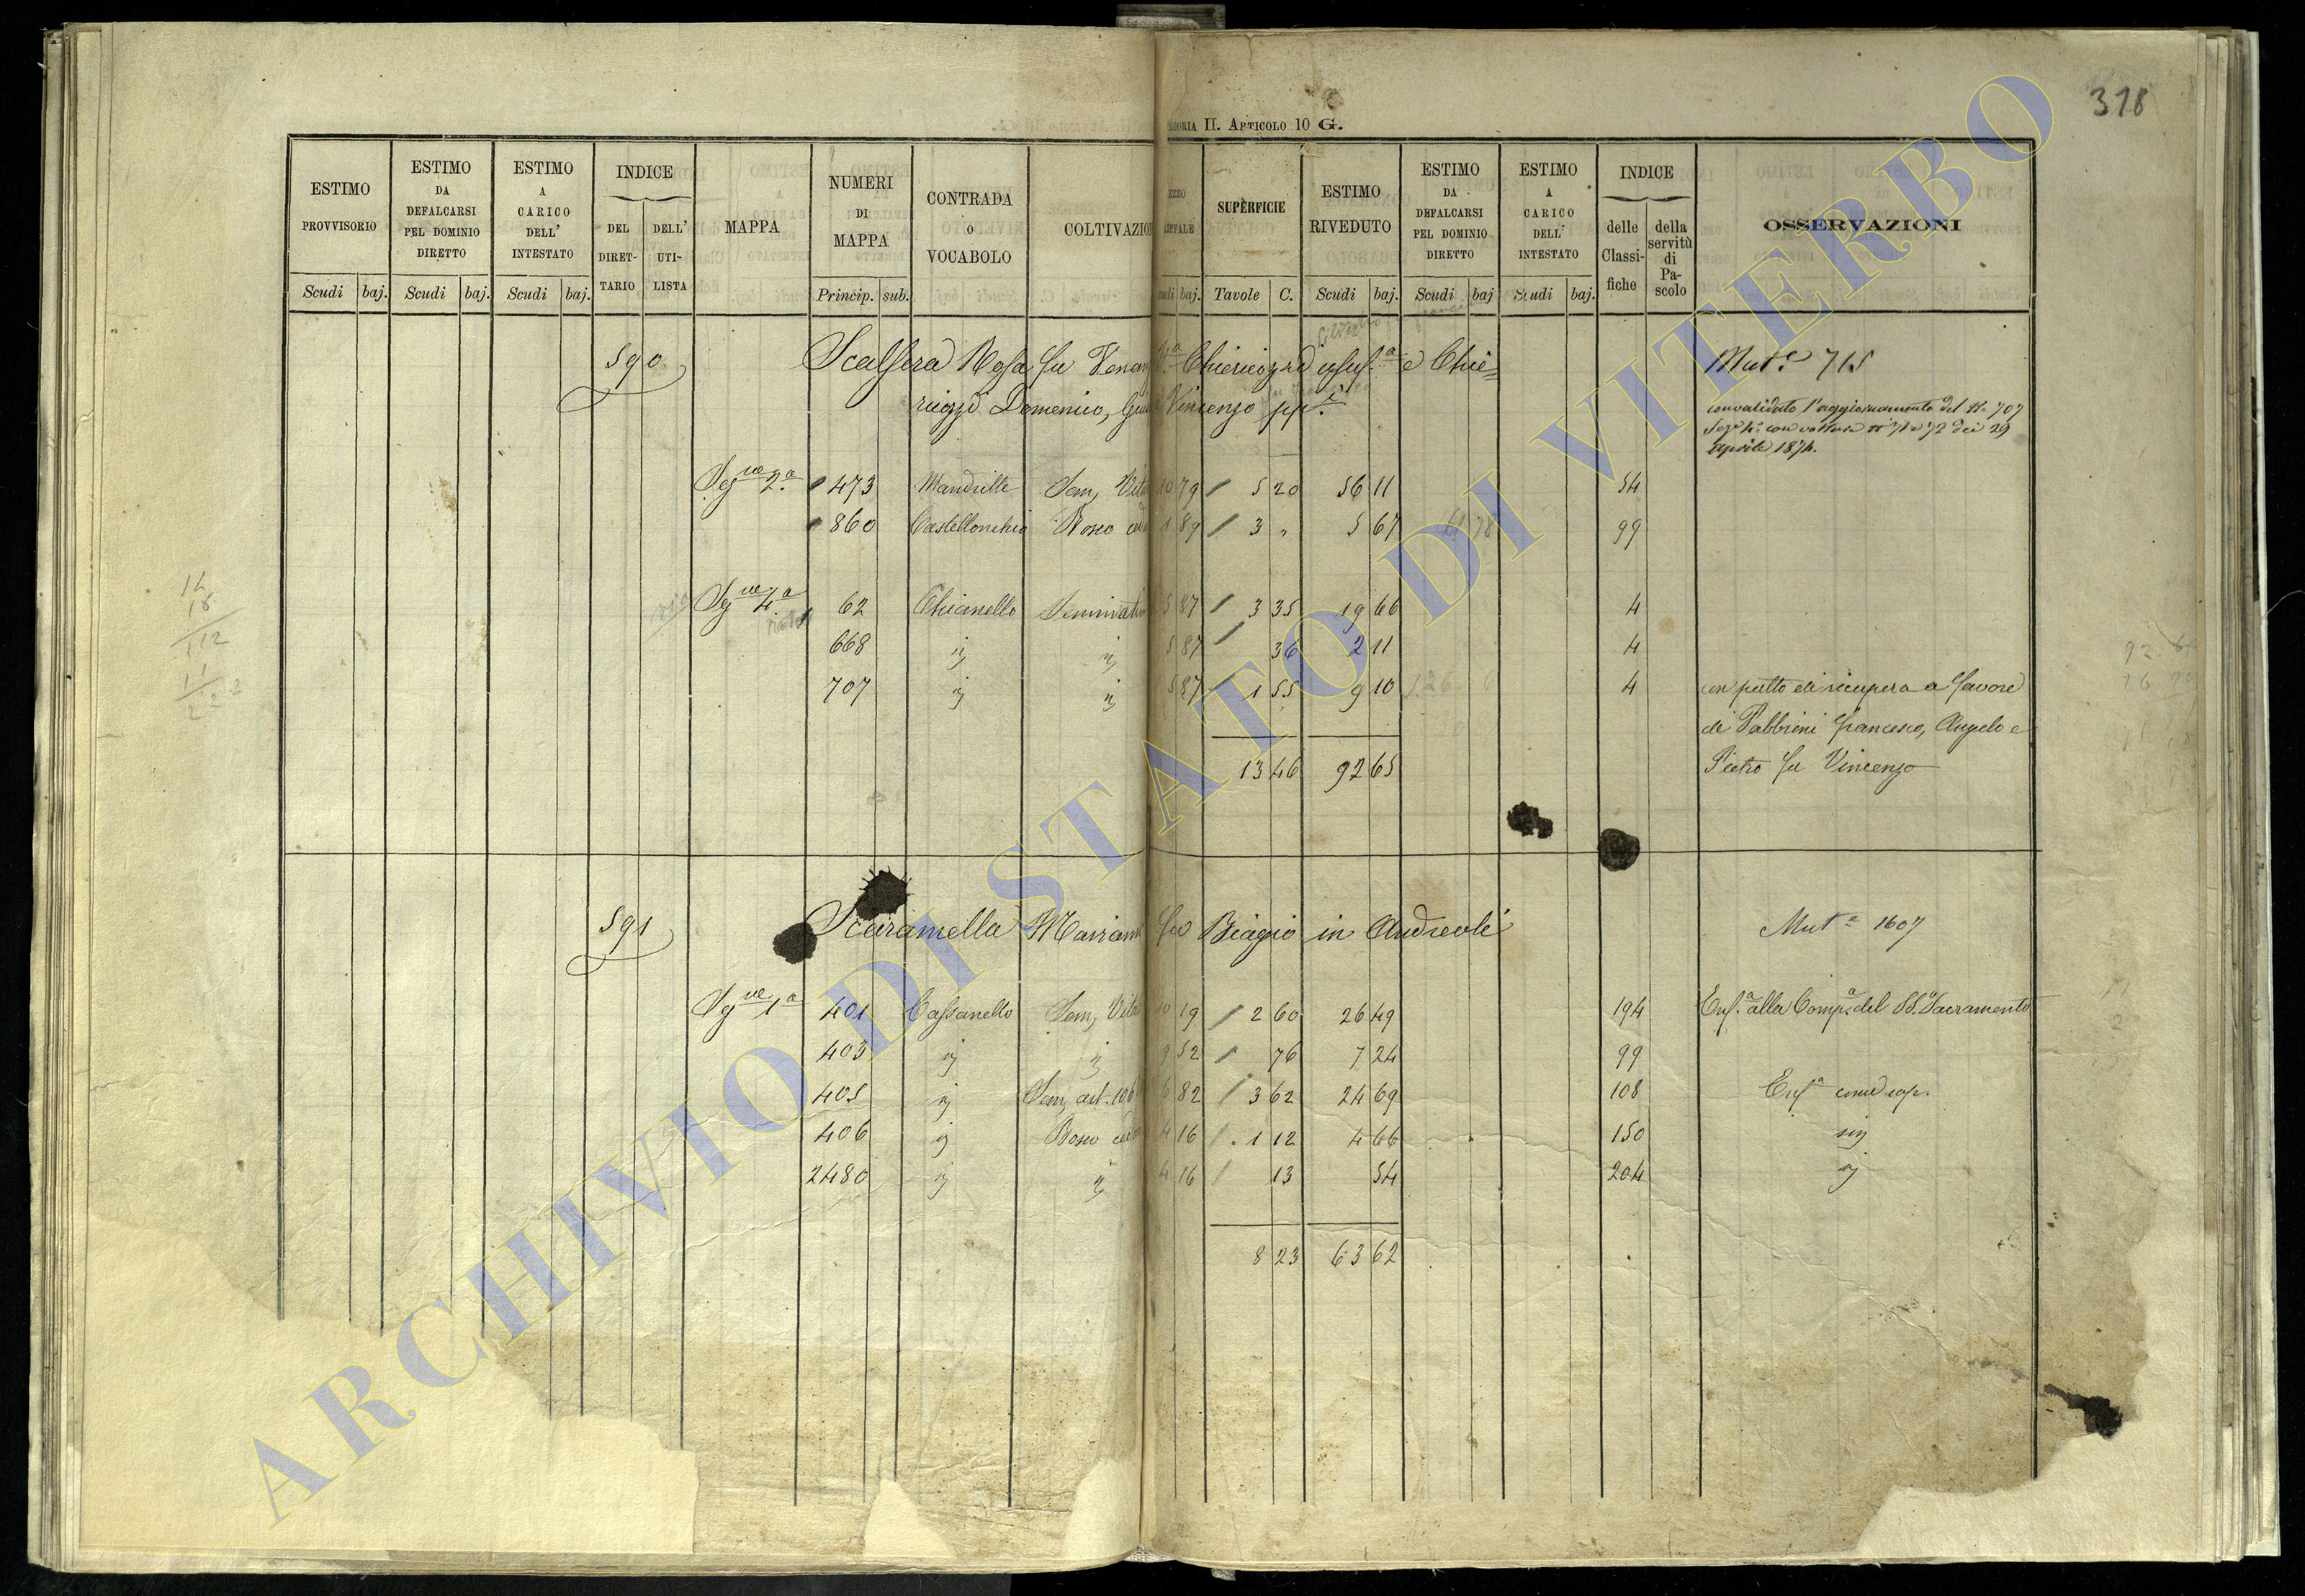 318
II. Articolo 10 G.
ESTIMO PROVVISORIO
ESTIMO DA DEFALCARSI PEL DOMINIO DIRETTO
ESTIMO A CARICO DELL' INTESTATO
INDICE
DEL DIRETTARIO
DELL' UTILISTA
MAPPA
NUMERI DI MAPPA
CONTRADA O VOCABOLO
COLTIVAZIO
SUPERFICIE
ESTIMO RIVEDUTO
ESTIMO DA DEFALCARSI PEL DOMINIO DIRETTO
ESTIMO A CARICO DELL' INTESTATO
INDICE
delle Classifiche
della servitù di Pascolo
OSSERVAZIONI
Scudi baj. Scudi baj. Scudi baj. Princip. sub. baj. Tavole C. Scudi baj. Scudi baj Scudi baj.
590 Scalsera Rosa fu Venan Chiericozzi usuf.a e Chie= Mut.e 715
ricozzi Domenico, Vincenzo pp.i
convalidato l'aggiornamento del N. 707
29
aprile 1874.
Seg.ne 2.a 473 Mandrille Sem, Vita 10 79 5 20 56 11 54
860 Castellonchio Bosco 1 89 3 " 5 67 99
Seg.ne 4.a 62 Chianello Seminativ 5 87 3 35 19 66 4
668 " " 5 87 36 2 11 4
707 " " 5 87 1 55 9 10 4 con patto di ricupera a favore
di Fabbrini Francesco, Angelo e
Pietro fu Vincenzo
13 46 92 65
591 Scaramella Mariann fu Biagio in Andreoli Mut.e 1607
Seg.ne 1.a 401 Cassanello Sem, Vita 10 19 2 60 26 49 194 Enf.a alla Comp.a del SS. Sacramento
403 " " 9 52 76 7 24 99
405 " Sem, 6 82 3 62 24 69 108 Enf.a come sop.
406 " Bosco 4 16 1 12 4 66 150
2480 " " 4 16 13 54 204 "
8 23 63 62
ARCHIVIO DI STATO DI VITERBO